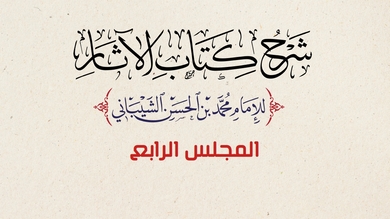 شَرْحُ كِتَابِ الآثَارِ
لِلإِمَامِ مُحَمَّد بْنِ الْحَسَنِ الشَّيْبَانِي
المجلس الرابع